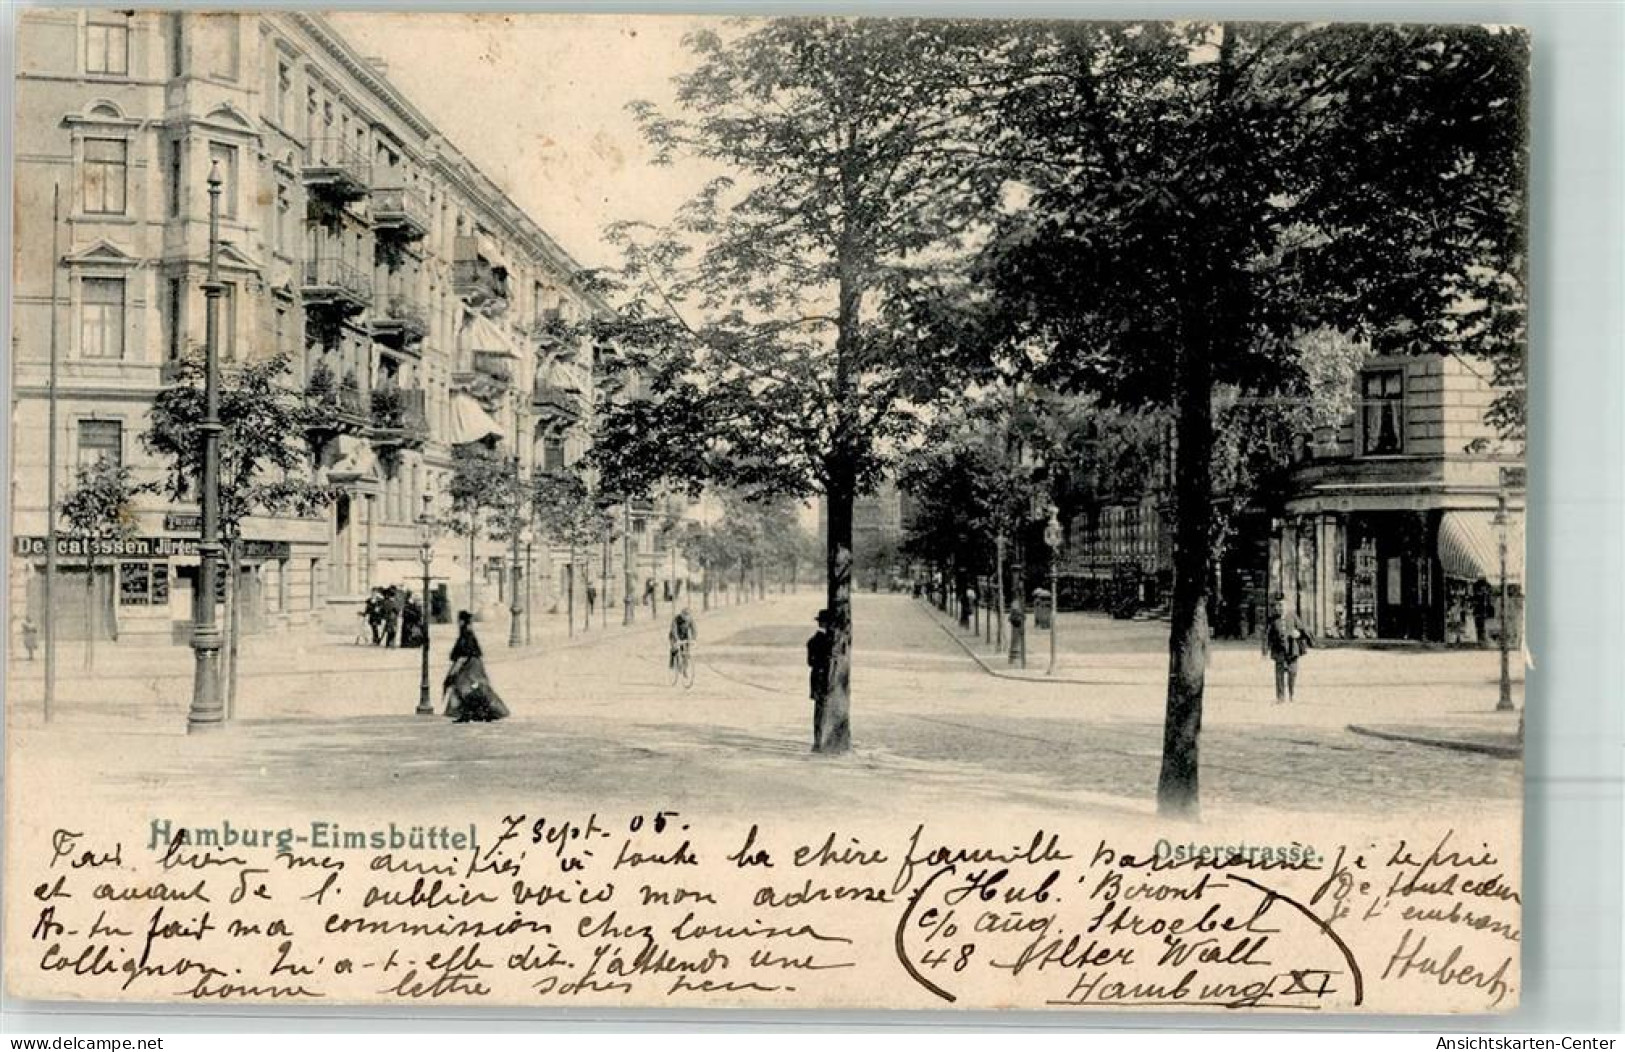 Delicatessen Jürgen
Hamburg-Eimsbüttel
7 Sept. 05.
Osterstrasse.
Fais bien mes amitiés à toute la chère famille parisienne je te prie
et avant de l'oublier voici mon adresse:
As-tu fait ma commission chez Louisa
Collignon. Qu'a-t-elle dit. J'attends une
bonne lettre sous peu.
Hub. Biront
c/o Aug. Stroebel
48 Alter Wall
Hamburg XI
De tout cœur
je t'embrasse
Hubert.
delcampe.net
Ansichtskarten-Center